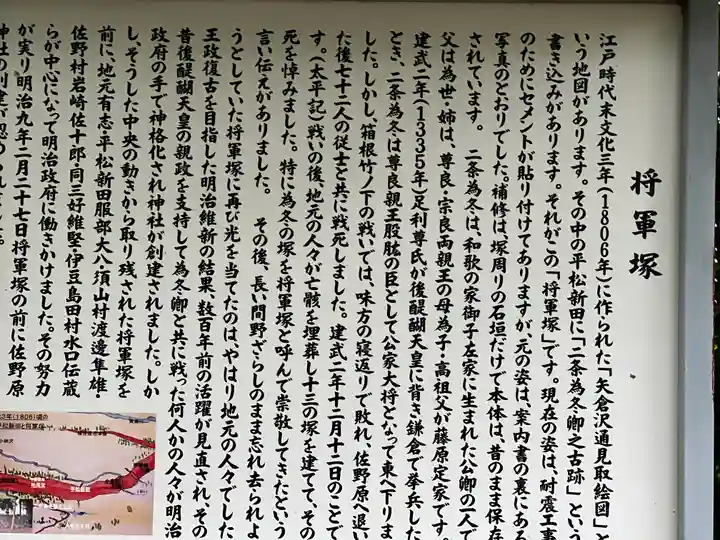 将軍塚
江戸時代末文化三年(1806年)に作られた「矢倉沢通見取絵図」と
いう地図があります。その中の平松新田に「二条為冬卿之古跡」という
書き込みがあります。それがこの「将軍塚」です。現在の姿は、耐震工事
のためにセメントが貼り付けてありますが、元の姿は、案内書の裏にある
写真のとおりでした。補修は、塚周りの石垣だけで本体は、昔のまま保存
されています。 二条為冬は、和歌の家御子左家に生まれた公卿の一人で
父は為世・姉は、尊良・宗良両親王の母為子・高祖父が藤原定家です。
建武二年(1335年)足利尊氏が後醍醐天皇に背き鎌倉で挙兵した
とき、二条為冬は尊良親王股肱の臣として公家大将となって東へ下りま
した。しかし、箱根竹ノ下の戦いでは、味方の寝返りで敗れ、佐野原へ退い
た後七十二人の従士と共に戦死しました。建武二年十二月十二日のことで
す。(太平記)戦いの後、地元の人々が亡骸を埋葬し十三の塚を建てて、その
死を悼みました。特に為冬の塚を将軍塚と呼んで崇敬してきたという
言い伝えがありました。 その後、長い間野ざらしのまま忘れ去られよ
うとしていた将軍塚に再び光を当てたのは、やはり地元の人々でした
王政復古を目指した明治維新の結果、数百年前の活躍が見直され、その
昔後醍醐天皇の親政を支持して為冬卿と共に戦った何人かの人々が明治
政府の手で神格化され神社が創建されました。しか
し、そうした中央の動きから取り残された将軍塚を
前に、地元有志・平松新田服部大八・須山村渡邊隼雄
佐野村岩崎佐十郎・同三好維堅・伊豆島田村水口伝蔵
らが中心になって明治政府に働きかけました。その努力
が実り明治九年二月二十七日将軍塚の前に佐野原
神社の創建が認められました。